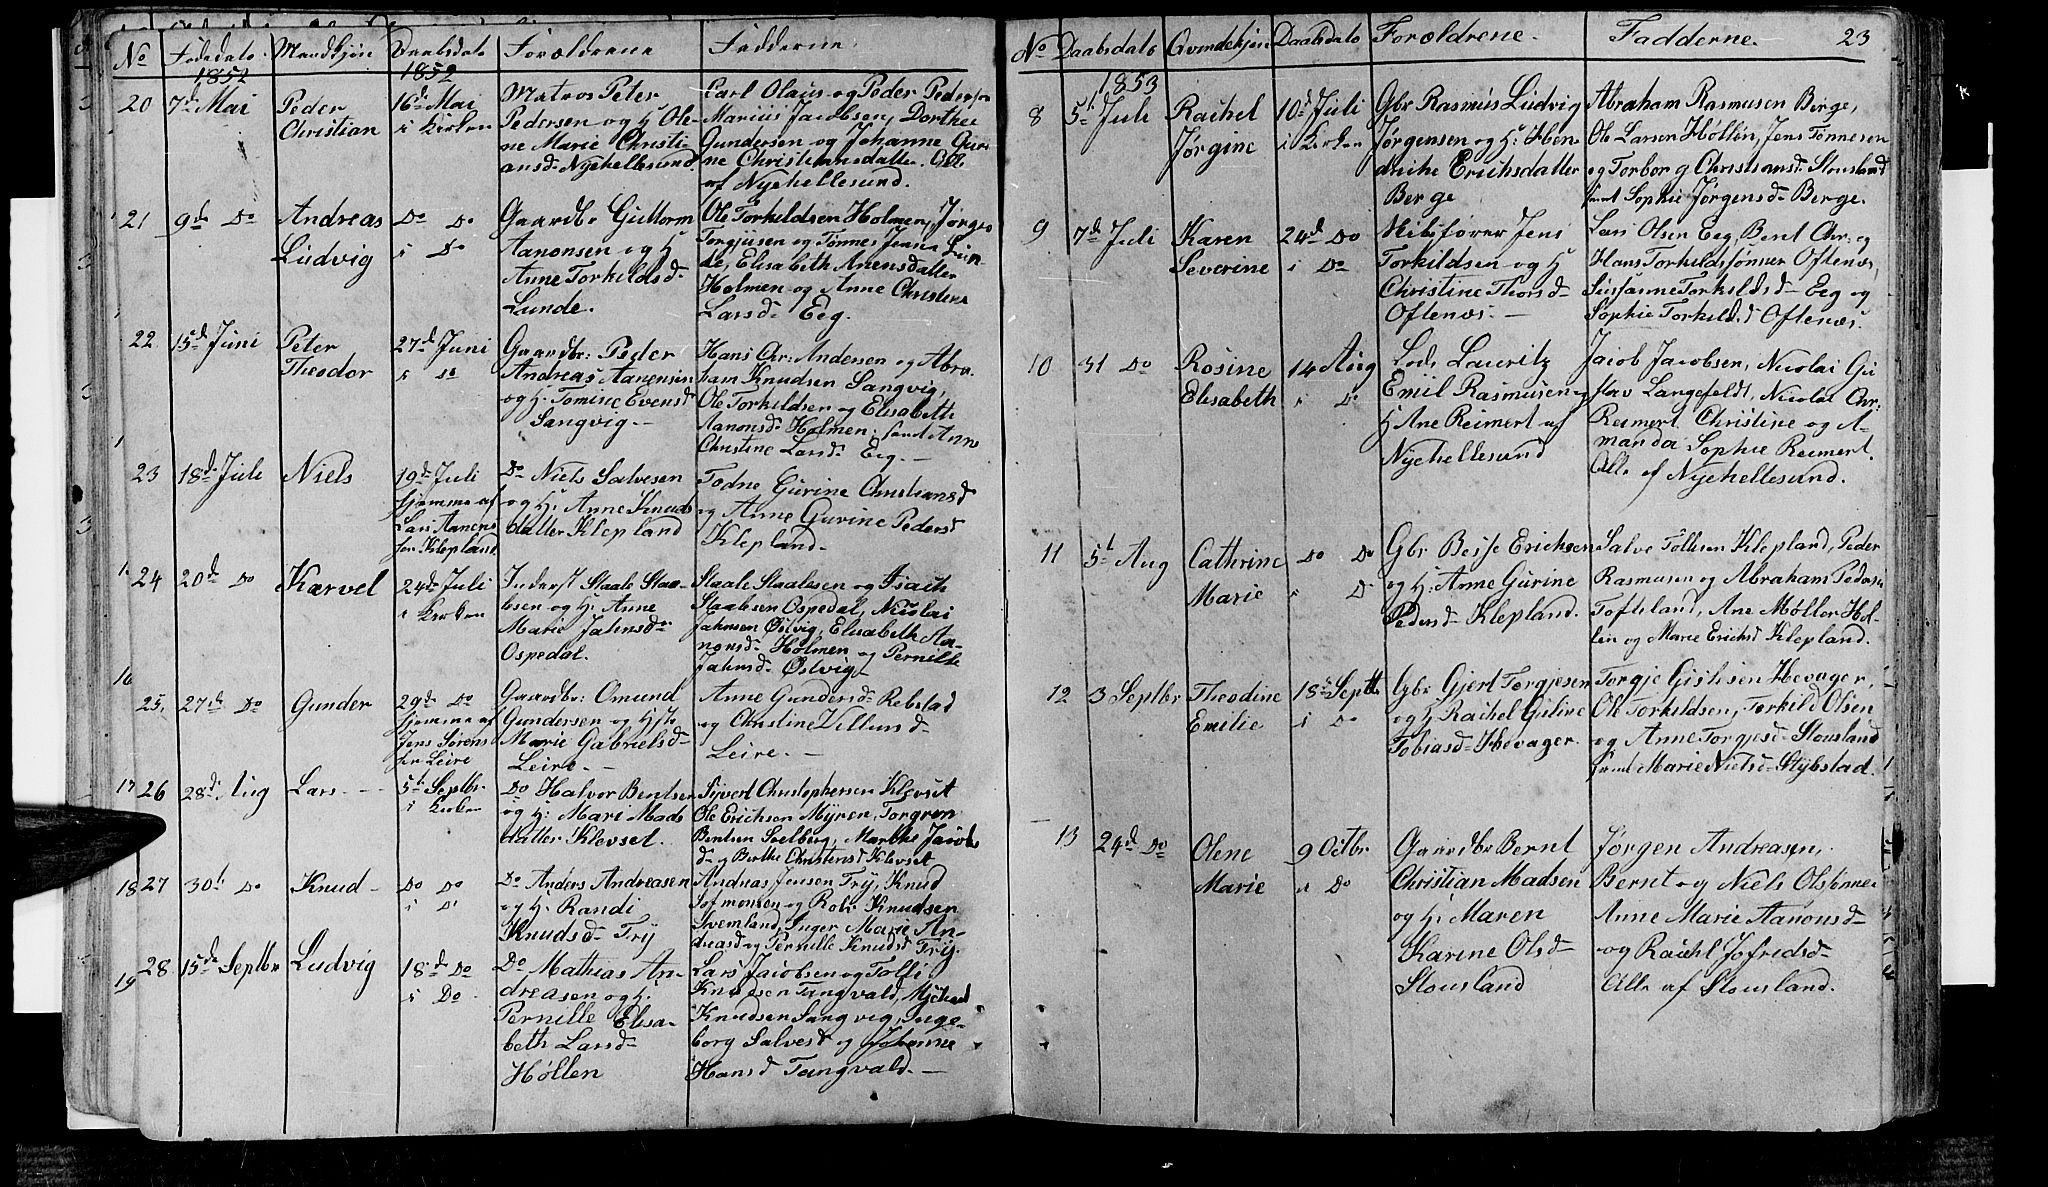 No Fødedato Mandkjøn Daabsdato Forældrene Fadderne
1852 1852
20 7d Mai Peder Christian 16d Mai i Kirken
Matros Peter
Pedersen og H Ole-
ne Marie Christi-
ansd Nyehellesund.
Carl Olaus og Peder Pedersen
Marius Jacobsen, Dorthea
Gundersen og Johanne Guri-
ne Christiansdatter. Alle
af Nyehellesund.
21 9d Do Andreas Ludvig Do Do i Do
Gaardbr Guttorm
Aanonsen og H
Anne Torkildsd
Lunde.
Ole Torkildsen Holmen, Jørgen
Torgjusen og Tønnes Jensen Lun-
de, Elisabeth Anensdatter
Holmen og Anne Christine
Larsd Eeg.
22 15d Juni Peter Theodor 27d Juni i do
Gaardbr: Peder
Andreas Aanensen
og H. Tomine Evensd
Sangvig.
Hans Chr: Andersen og Abra-
ham Knudsen Sangvig,
Ole Torkildsen og Elisabeth
Aanonsd Holmen, samt Anne
Christine Larsd Eeg.
23 18d Juli Niels 19d Juli
hjemme af
Lars Aanens
sen Klepland.
Do Niels Salvesen
og H: Anne Knuds
datter Klepland
Todne Gurine Christiansd
og Anne Gurine Pedersd
Klepland.
24 20d Do Karvel 24d Juli i Kirken
Inderst Staale Staa-
lesen og H: Anne
Marie Jahnsd
Ospedal.
Staale Staalesen og Isach
Staalesen Ospedal, Nicolai
Jahnsen Østvig, Elisabeth Aa-
nonsd Holmen og Pernille
Jahnsd Østvig
25. 27d Do Gunder 29d Do
hjemme af
Jens Sørens
sen Leire
Gaardbr: Omund
Gundersen og Hst
Marie Gabrielsd
Leire.
Anne Gundersd Robstad
og Christine Zillund
Leire.
26 28d Aug Lars 5t Septbr i Kirken
Do Halvor Bentsen
og H: Mari Mads
datter Klevset.
Syvert Christophersen Klevset
Ole Erichsen Myren, Torgren
Bentsen Stelberg, Marthe Jacobs
d og Berthe Christensd Klevset
27 30t Do Knud Do Do i Do
Do Anders Andreasen
og H: Randi
Knudsd Try
Andreas Jensen Try, Knud
og Rolv Knudsen
Svemland, Inger Marie An-
dreasd og Pernille Knudsd Try.
28 15de Septbr Ludvig 18d Do i Do
Do Mathias An-
dreasen og H.
Pernille Elisa-
beth Larsd
Høllen
Lars Jacobsen og Tolli
Knudsen Tangvald, Michael
Knudsen Sangvig, Inge-
borg Salvesd og Johanne
Hansd Tangvald.
No Daabsdato Qvindekjøn Daabsdato Forældrene. Fadderne. 23
1853
8 5t Juli Rachel Jørgine 10d Juli i Kirken
Gbr Rasmus Ludvig
Jørgensen og H: Hen-
driche Erichsdatter
Berge
Abraham Rasmusen Berge,
Ole Larsen Høllen, Jens Tønnesen
og Torborg Christiansd Stousland
samt Sophie Jørgensd Berge.
9 7d Juli Karen Severine 24d Do i Do
Jens
Torkildsen og H
Christine Thorsd
Oftenæs.
Lars Olsen Eeg, Bent Chr: og
Hans Torkildsønner Oftenæs,
Susanne Torkildsd Eeg og
Sophie Torkildsd Oftenæs.
10 31 Do Rosine Elisabeth 14 Aug i Do
Lods Lauritz
Emil Rasmusen og
H Ane Reimert af
Nyehellesund
Jacob Jacobsen, Nicolai Gu
stav Langefeldt, Nicolai Chr:
Reimert, Christine og A-
manda Sophie Reimert.
Alle af Nyehellesund.
11 5t Aug Cathrine Marie Do Do i D
Gbr Besse Erichsen
og H: Anne Gurine
Pedersd Klepland.
Salve Tollisen Klepland, Peder
Rasmusen og Abraham Pedersen
Tofteland, Ane Møller Høl-
len og Marie Erichsd Klepland.
12 3 Septbr Theodine Emilie 18d Septb i Do
Gbr Gjert Torgjesen
og H Rachel Gisline
Tobiasd Hevager.
Torgje Gislesen Hevager,
Ole Torkildsen, Torkild Olsen
og Anne Torgjesd Stousland
samt Marie Nielsd Stybstad.
13 24d Do Olene Marie 9 Octbr i Do
Gaardbr Bernt
Christian Madsen
og H: Maren
Karine Olsd
Stousland
Jørgen Andreasen,
Bernt og Niels Olsønner
Anne Marie Aanonsd
og Rachel Jofridsd
Alle af Stousland.